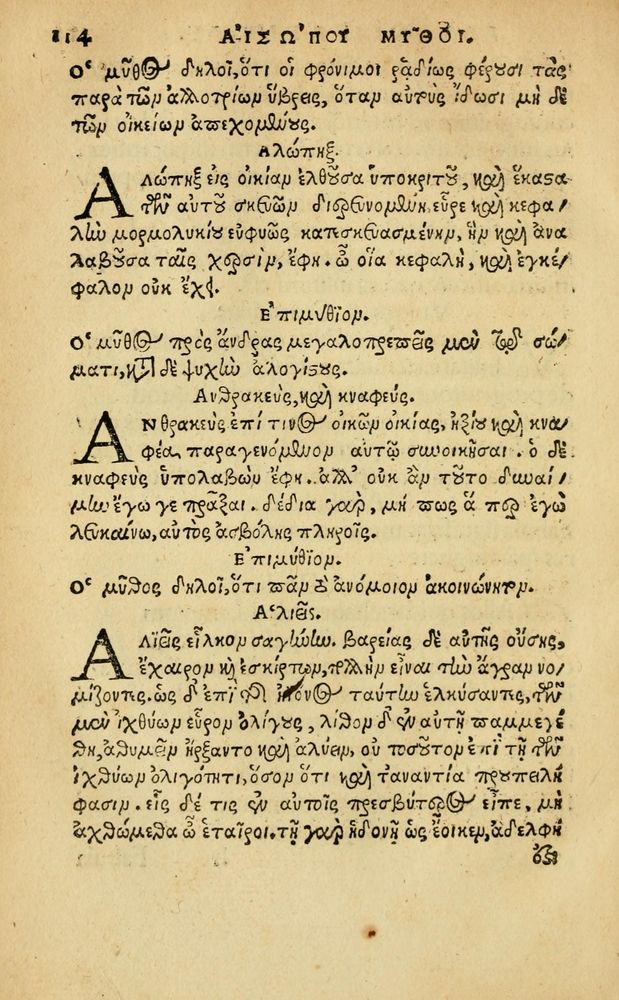 114 ΑἸΣΩΠΟΥ ΜΥ͂ΘΟΙ.
Ὁ μῦθος δηλοῖ, ὅτι οἱ φρόνιμοι ῥᾳδίως φέρουσι τὰς
παρὰ τῶν ἀλλοτρίων ὕβρεις, ὅταν αὐτοὺς ἴδωσι μὴ δὲ
τῶν οἰκείων ἀπεχομένους.
Αλώπηξ.
Αλώπηξ εἰς οἰκίαν ἐλθοῦσα ὑποκριτοῦ, καὶ ἕκαστα
τῶν αὐτοῦ σκευῶν διερευνομένη, εὗρε καὶ κεφα/
λὴν μορμολυκίου εὐφυῶς κατεσκευασμένην, ἣν καὶ ἀνα
λαβοῦσα ταῖς χερσὶν, ἔφη. ὦ οἵα κεφαλὴ, καὶ ἐγκέ/
φαλον οὐκ ἔχει.
Ἐπιμύθιον.
Ὁ μῦθος πρὸς ἄνδρας μεγαλοπρεπεῖς μὲν τῷ σώ/
ματι, κατὰ δὲ ψυχὴν ἀλογίστους.
Ανθρακεὺς, καὶ κναφεύς.
Ανθρακεὺς ἐπί τινος οἰκῶν οἰκίας, ἠξίου καὶ κνα/
φέα, παραγενόμενον αὐτῷ συνοικῆσαι. ὁ δὲ
κναφεὺς ὑπολαβὼν ἔφη. ἀλλ' οὐκ ἂν τοῦτο δυναί/
μην ἔγωγε πρᾶξαι. δέδια γὰρ, μή πως ἅ περ ἐγὼ
λευκαίνω, αὐτὸς ἀσβόλης πληροῖς.
Ἐπιμύθιον.
Ὁ μῦθος δηλοῖ, ὅτι πᾶν τὸ ἀνόμοιον ἀκοινώνητον.
Ἁλιεῖς.
Αλιεῖς εἷλκον σαγήνην. βαρείας δὲ αὐτῆς οὔσης,
ἔχαιρον καὶ ἐσκίρτων, πολλὴν εἶναι τὴν ἄγραν νο/
μίζοντες. ὡς δ' ἐπὶ τῆς ἠϊόνος ταύτην ἑλκύσαντες, τῶν
μὲν ἰχθύων εὗρον ὀλίγους, λίθον δ' ἐν αὐτῇ παμμεγέ
θη, ἀθυμεῖν ἤρξαντο καὶ ἀλύειν, οὐ τοσοῦτον ἐπὶ τῇ τῶν
ἰχθύων ὀλιγότητι, ὅσον ὅτι καὶ τἀναντία προυπειλή
φασιν. εἷς δέ τις ἐν αὐτοῖς πρεσβύτερος εἶπε, μὴ
ἀχθώμεθα ὦ ἑταῖροι. τῇ γὰρ ἡδονῇ ὡς ἔοικεν, ἀδελφή